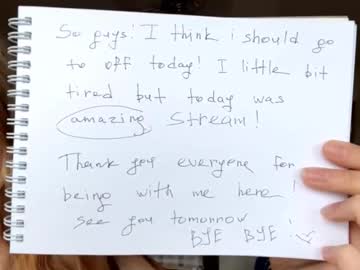 So guys! I think i should go
to off today! I little bit
tired but today was
amazing stream!
Thank you everyone for
being with me here!
see you tomorrow
BYE BYE!